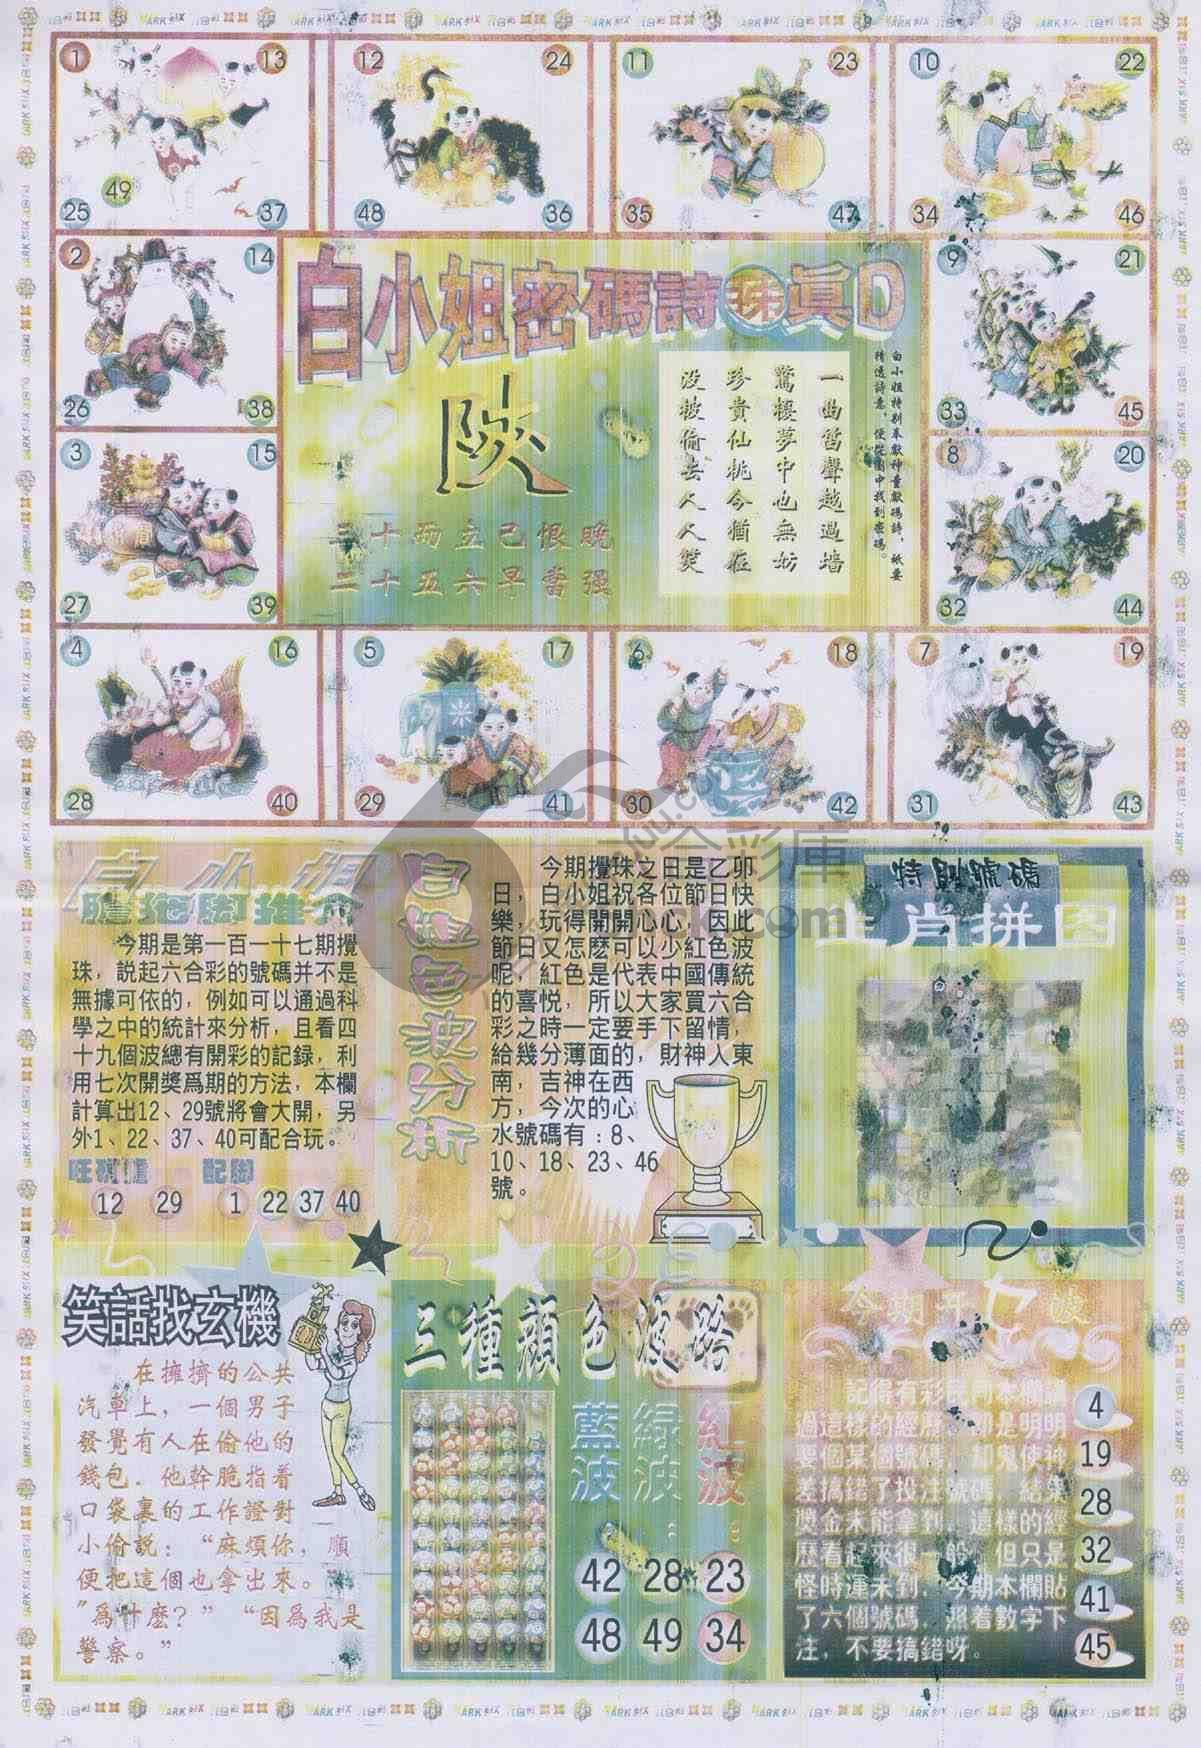 1 13
49
25 37
12 24
48 36
11 23
35 47
10 22
34 46
2 14
26 38
9 21
33 45
3 15
27 39
8 20
32 44
白小姐密碼詩珠真D
白小姐特別奉獻神童獻碼詩，祇要
精透詩意，便從圖中找到密碼。
一曲笛聲越過墻
驚擾夢中也無妨
珍貴仙桃今猶在
没被偷去人人奬
陝
三十而立已恨晚
二十五六早當强
4 16
28 40
5 17
29 41
6 18
30 42
7 19
31 43
白小姐
膽拖脚推介
今期是第一百一十七期攪
珠，説起六合彩的號碼并不是
無據可依的，例如可以通過科
學之中的統計來分析，且看四
十九個波總有開彩的記録，利
用七次開獎爲期的方法，本欄
計算出12、29號將會大開，另
外1、22、37、40可配合玩。
旺碼膽 配脚
12 29 1 22 37 40
色波分析
今期攪珠之日是乙卯
日，白小姐祝各位節日快
樂，玩得開開心心，因此
節日又怎麽可以少紅色波
呢，紅色是代表中國傳統
的喜悦，所以大家買六合
彩之時一定要手下留情，
給幾分薄面的，財神人東
南，吉神在西
方，今次的心
水號碼有：8、
10、18、23、46
號。
特別號碼
生肖拼图
笑話找玄機
在擁擠的公共
汽車上，一個男子
發覺有人在偷他的
錢包．他幹脆指着
口袋裏的工作證對
小偷説：“麻煩你，順
便把這個也拿出來。
”爲什麽？”“因爲我是
警察。”
三種顔色波路
藍波：42 48
緑波：28 49
紅波：23 34
過這樣的經歷，即是明明
要個某個號碼，却鬼使神
差搞錯了投注號碼，結果
奬金未能拿到，這樣的經
歷看起來很一般，但只是
怪時運未到，今期本欄貼
了六個號碼，照着數字下
注，不要搞錯呀。
4
19
28
32
41
45